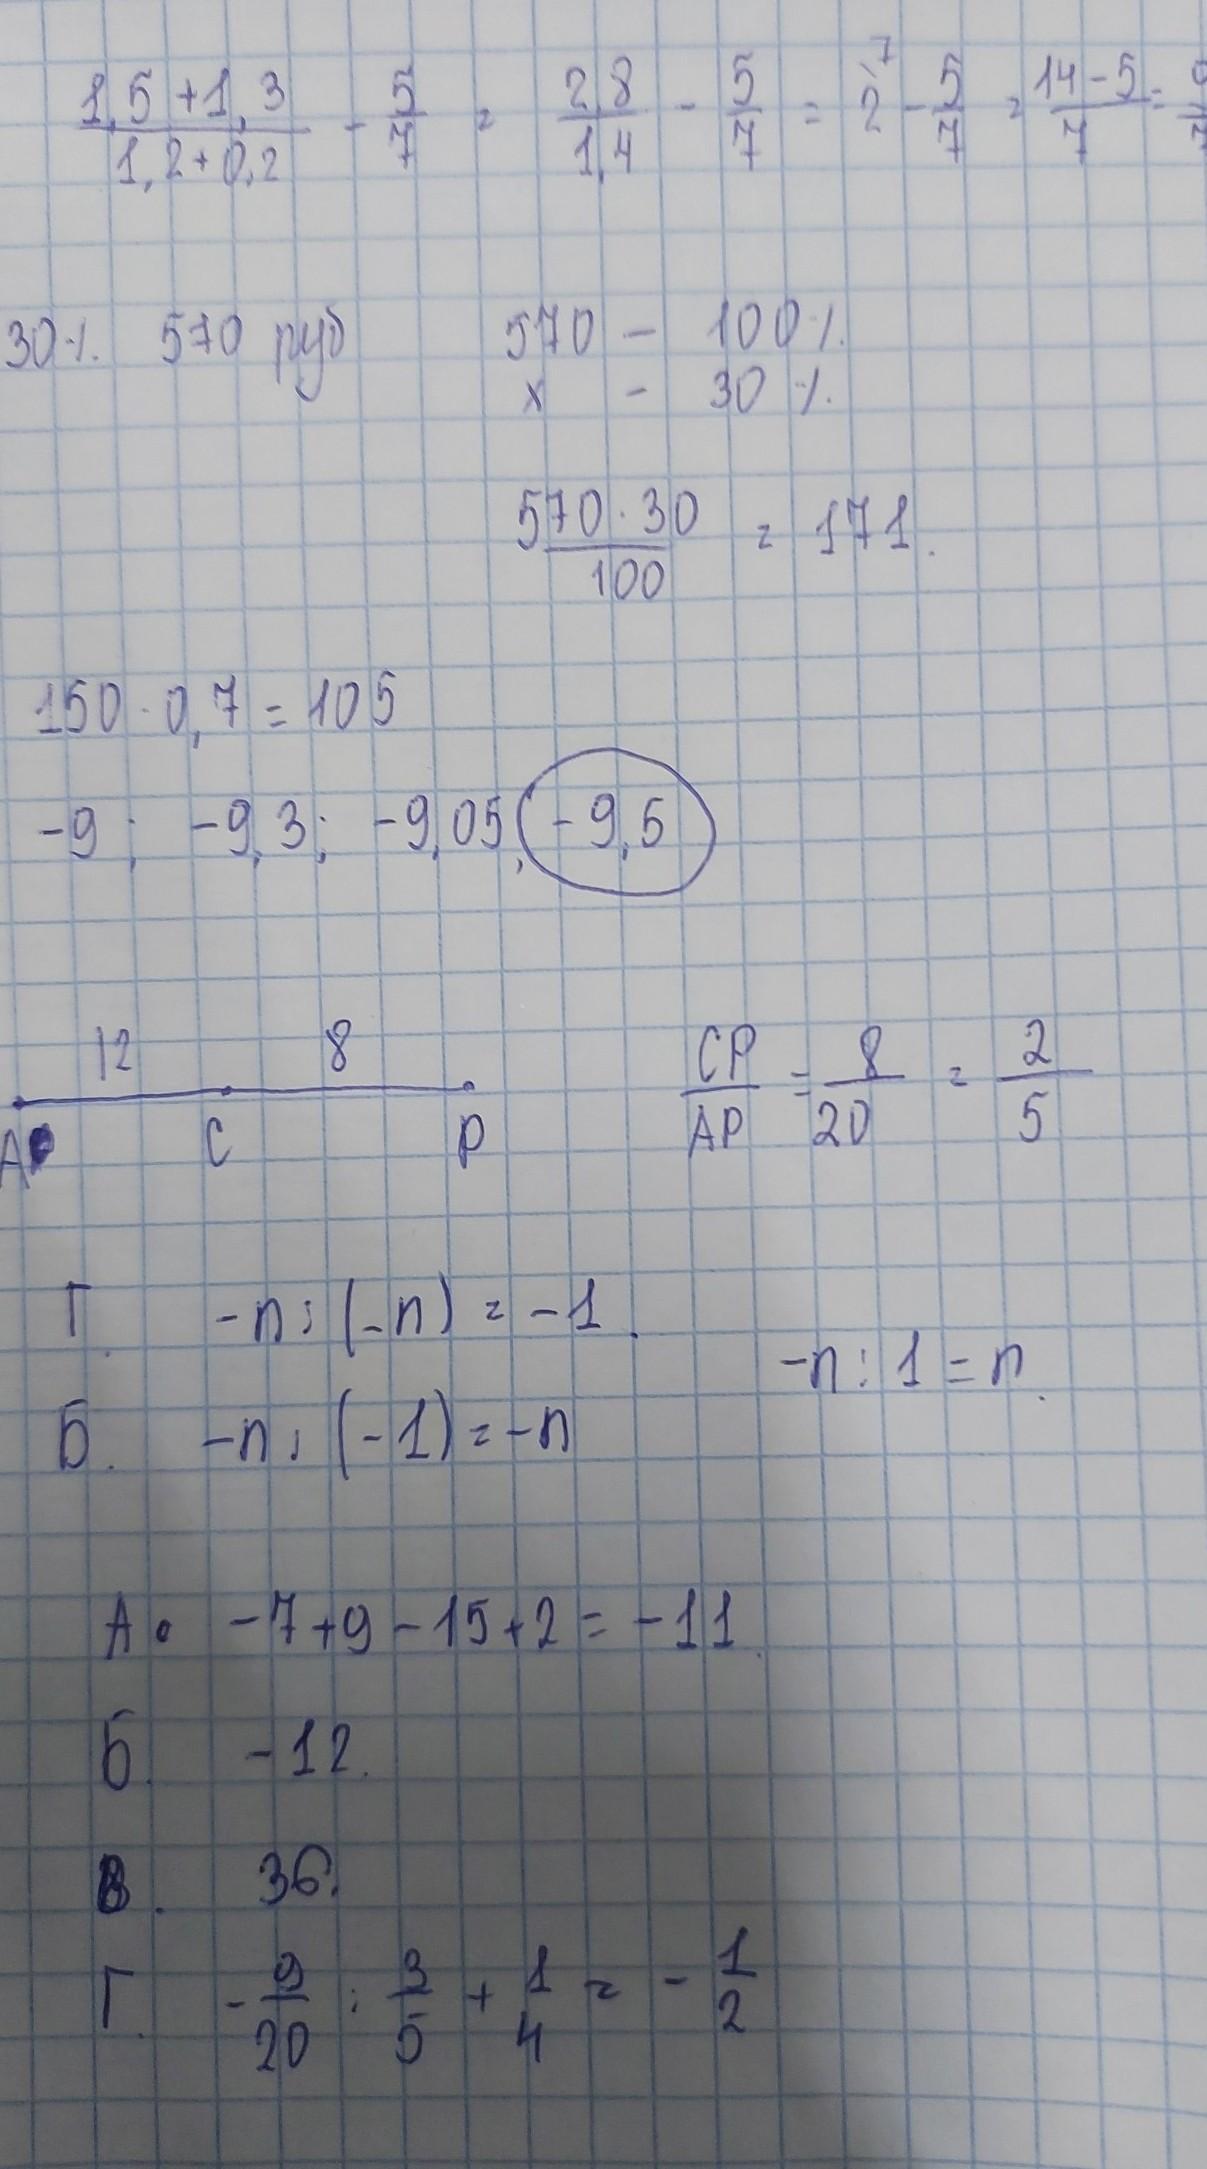 (1,5 + 1,3)/(1,2 + 0,2) - 5/7 = 2,8/1,4 - 5/7 = 2\7 - 5/7 = (14 - 5)/7 = 9/7
30% 570 руб 570 - 100%
x - 30%
(570 · 30)/100 = 171.
150 · 0,7 = 105
-9; -9,3; -9,05; -9,5
12 8
A C P CP/AP = 8/20 = 2/5
Г. -n : (-n) = -1.
-n : 1 = n.
Б. -n : (-1) = -n
А. -7 + 9 - 15 + 2 = -11.
Б. -12.
В. 36.
Г. -9/20 : 3/5 + 1/4 = -1/2